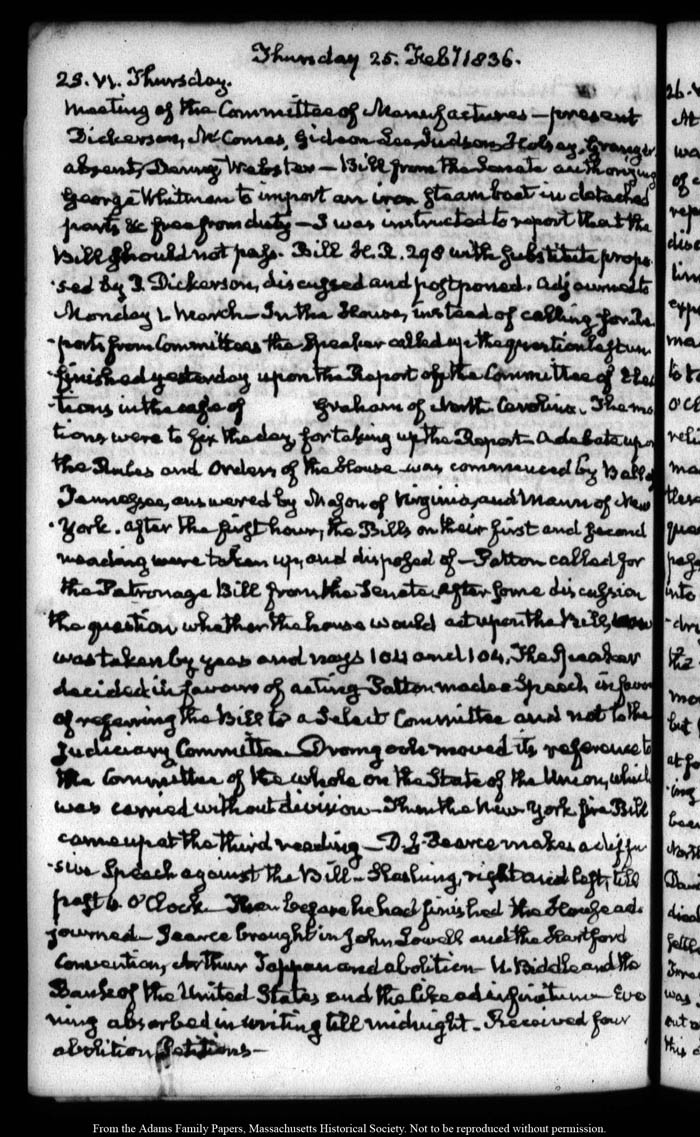 Thursday 25. Feby 1836.
25. VI. Thursday.
Meeting of the Committee of Manufactures — present
Dickerson, McComas, Gideon Lee, Judson, Holsey, Granger
absent, Denny, Webster — Bill from the Senate authorizing
George Whitman to import an iron steam boat in detached
parts &c free from duty — I was instructed to report that the
Bill should not pass. Bill H.R. 298 with substitute propo-
-sed by P. Dickerson, discussed and postponed. Adjourned to
Monday 1. March — In the House, instead of calling for Re-
-ports from Committees the Speaker called up the question left un-
-finished yesterday upon the Report of the Committee of Elec-
-tions in the case of Graham of North Carolina. The mo-
tions were to fix the day, for taking up the Report. A debate upon
the Rules and Orders of the House was commenced by Bell of
Tennessee, answered by Mason of Virginia, and Mann of New
-York. After the first hour, the Bills on their first and second
reading were taken up, and disposed of — Patton called for
the Patronage Bill from the Senate. After some discussion
the question whether the house would act upon the Bill,
was taken by yeas and nays 104 and 104. The Speaker
decided in favour of acting. Patton made a Speech in favor
of referring the Bill to a Select Committee and not to the
Judiciary Committee. Dromgoole moved its reference to
the Committee of the whole on the State of the Union, which
was carried without division — Then the New York fire Bill
came up at the third reading — D. J. Pearce makes a diffu-
-sive Speech against the Bill — Slashing, right and left, till
past 4. O'Clock. Then before he had finished the House ad-
journed — Pearce brought in John Lowell and the Hartford
Convention, Arthur Tappan and abolition — N. Biddle and the
Bank of the United States and the like ad infinitum — Eve-
ning absorbed in writing till midnight. Received four
abolition Petitions —
From the Adams Family Papers, Massachusetts Historical Society. Not to be reproduced without permission.